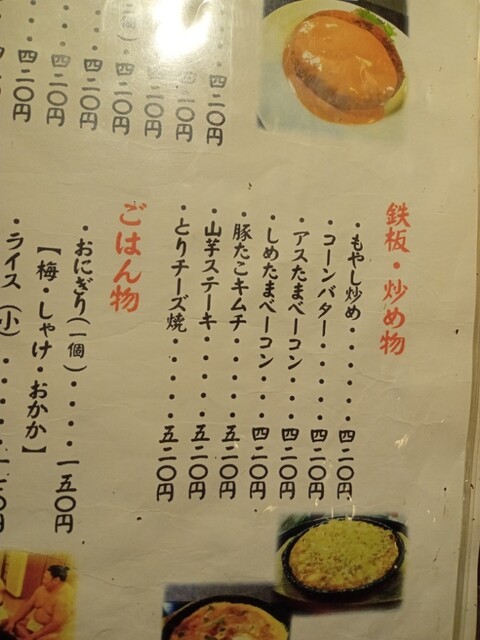 四二〇円
四二〇円
四二〇円
四二〇円
四二〇円
四二〇円
鉄板・炒め物
・もやし炒め・・・・・・四二〇円
・コーンバター・・・・・四二〇円
・アスたまベーコン・・・四二〇円
・しめたまベーコン・・・四二〇円
・豚たこキムチ・・・・・五二〇円
・山芋ステーキ・・・・・五二〇円
・とりチーズ焼・・・・・五二〇円
ごはん物
・おにぎり(一個)・・・・一五〇円
【梅・しゃけ・おかか】
・ライス(小)・・・・